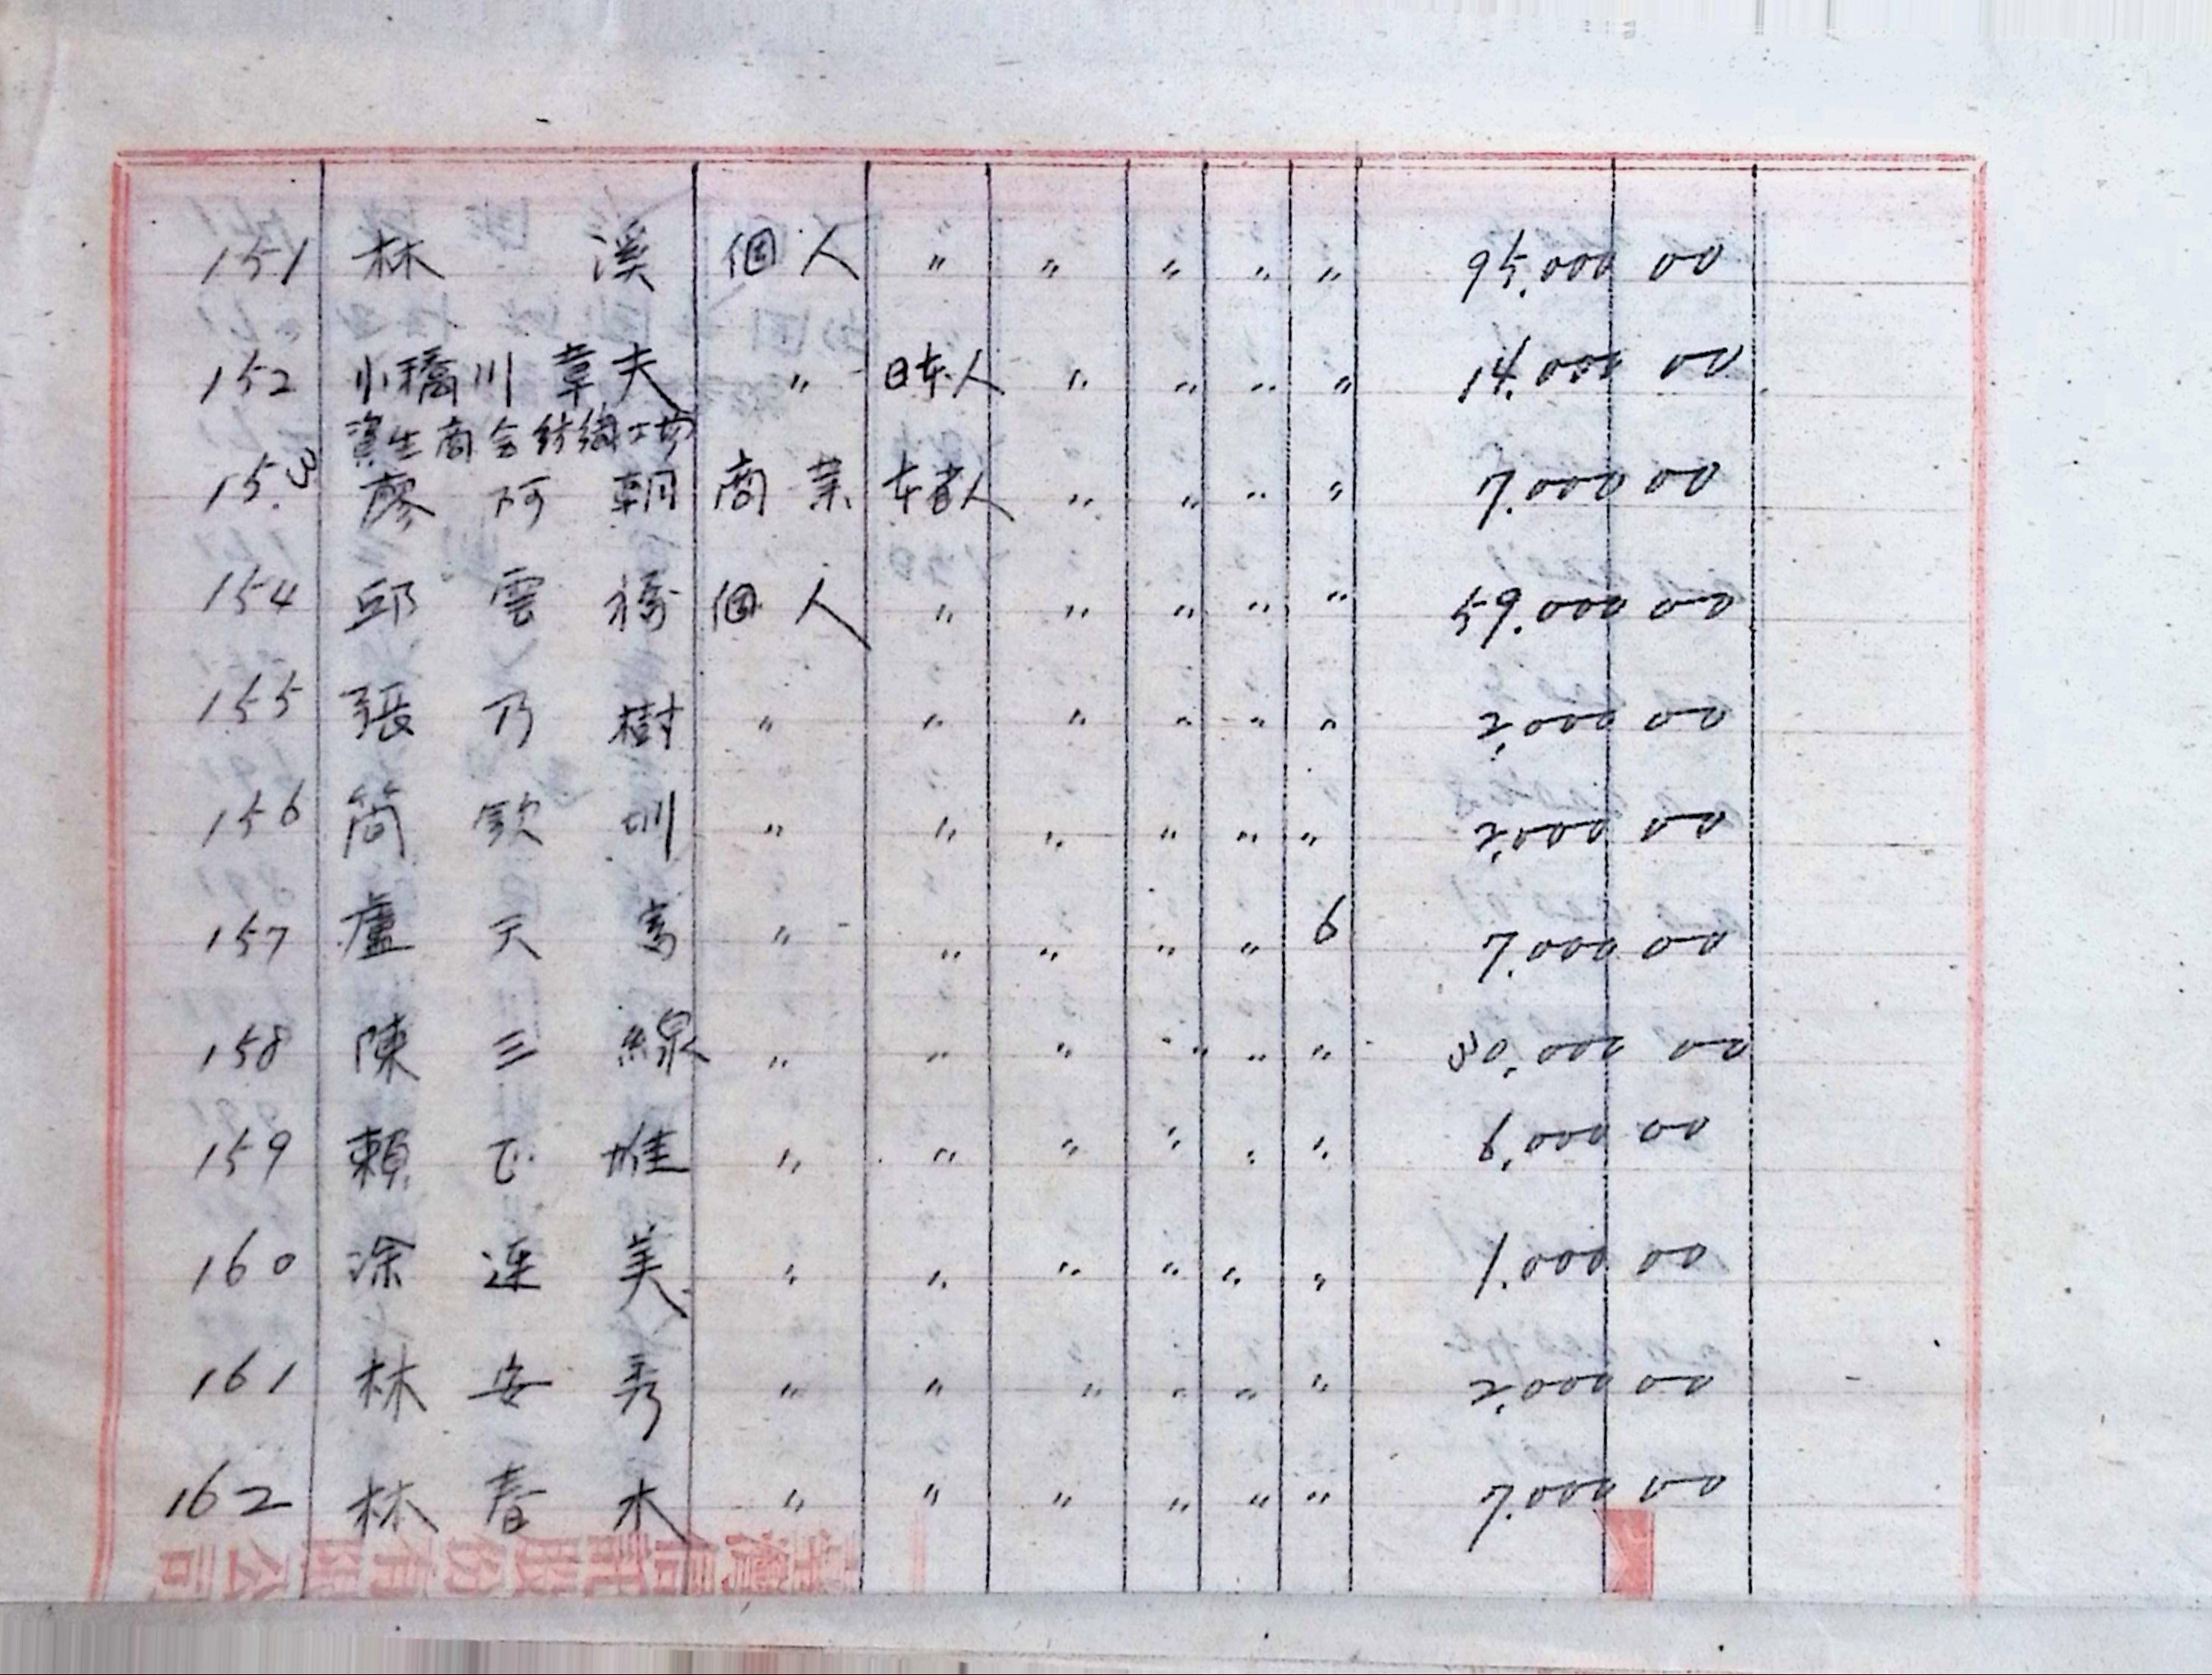 151 林 溪 個人 〃 〃 〃 〃 〃 95.000 00
152 小橋川章夫 〃 日本人 〃 〃 〃 〃 14.000 00
資生商会紡織工場
153 廖阿朝 商業 本省人 〃 〃 〃 〃 7.000 00
154 邱雲橋 個人 〃 〃 〃 〃 〃 59.000 00
155 張乃樹 〃 〃 〃 〃 〃 〃 2,000 00
156 簡欽圳 〃 〃 〃 〃 〃 〃 2,000 00
157 盧天富 〃 〃 〃 〃 〃 6 7.000 00
158 陳三線 〃 〃 〃 〃 〃 〃 30,000 00
159 賴正堆 〃 〃 〃 〃 〃 〃 6,000 00
160 涂連美 〃 〃 〃 〃 〃 〃 1.000 00
161 林安秀 〃 〃 〃 〃 〃 〃 2,000 00
162 林春木 〃 〃 〃 〃 〃 〃 7.000 00
臺灣信託股份有限公司